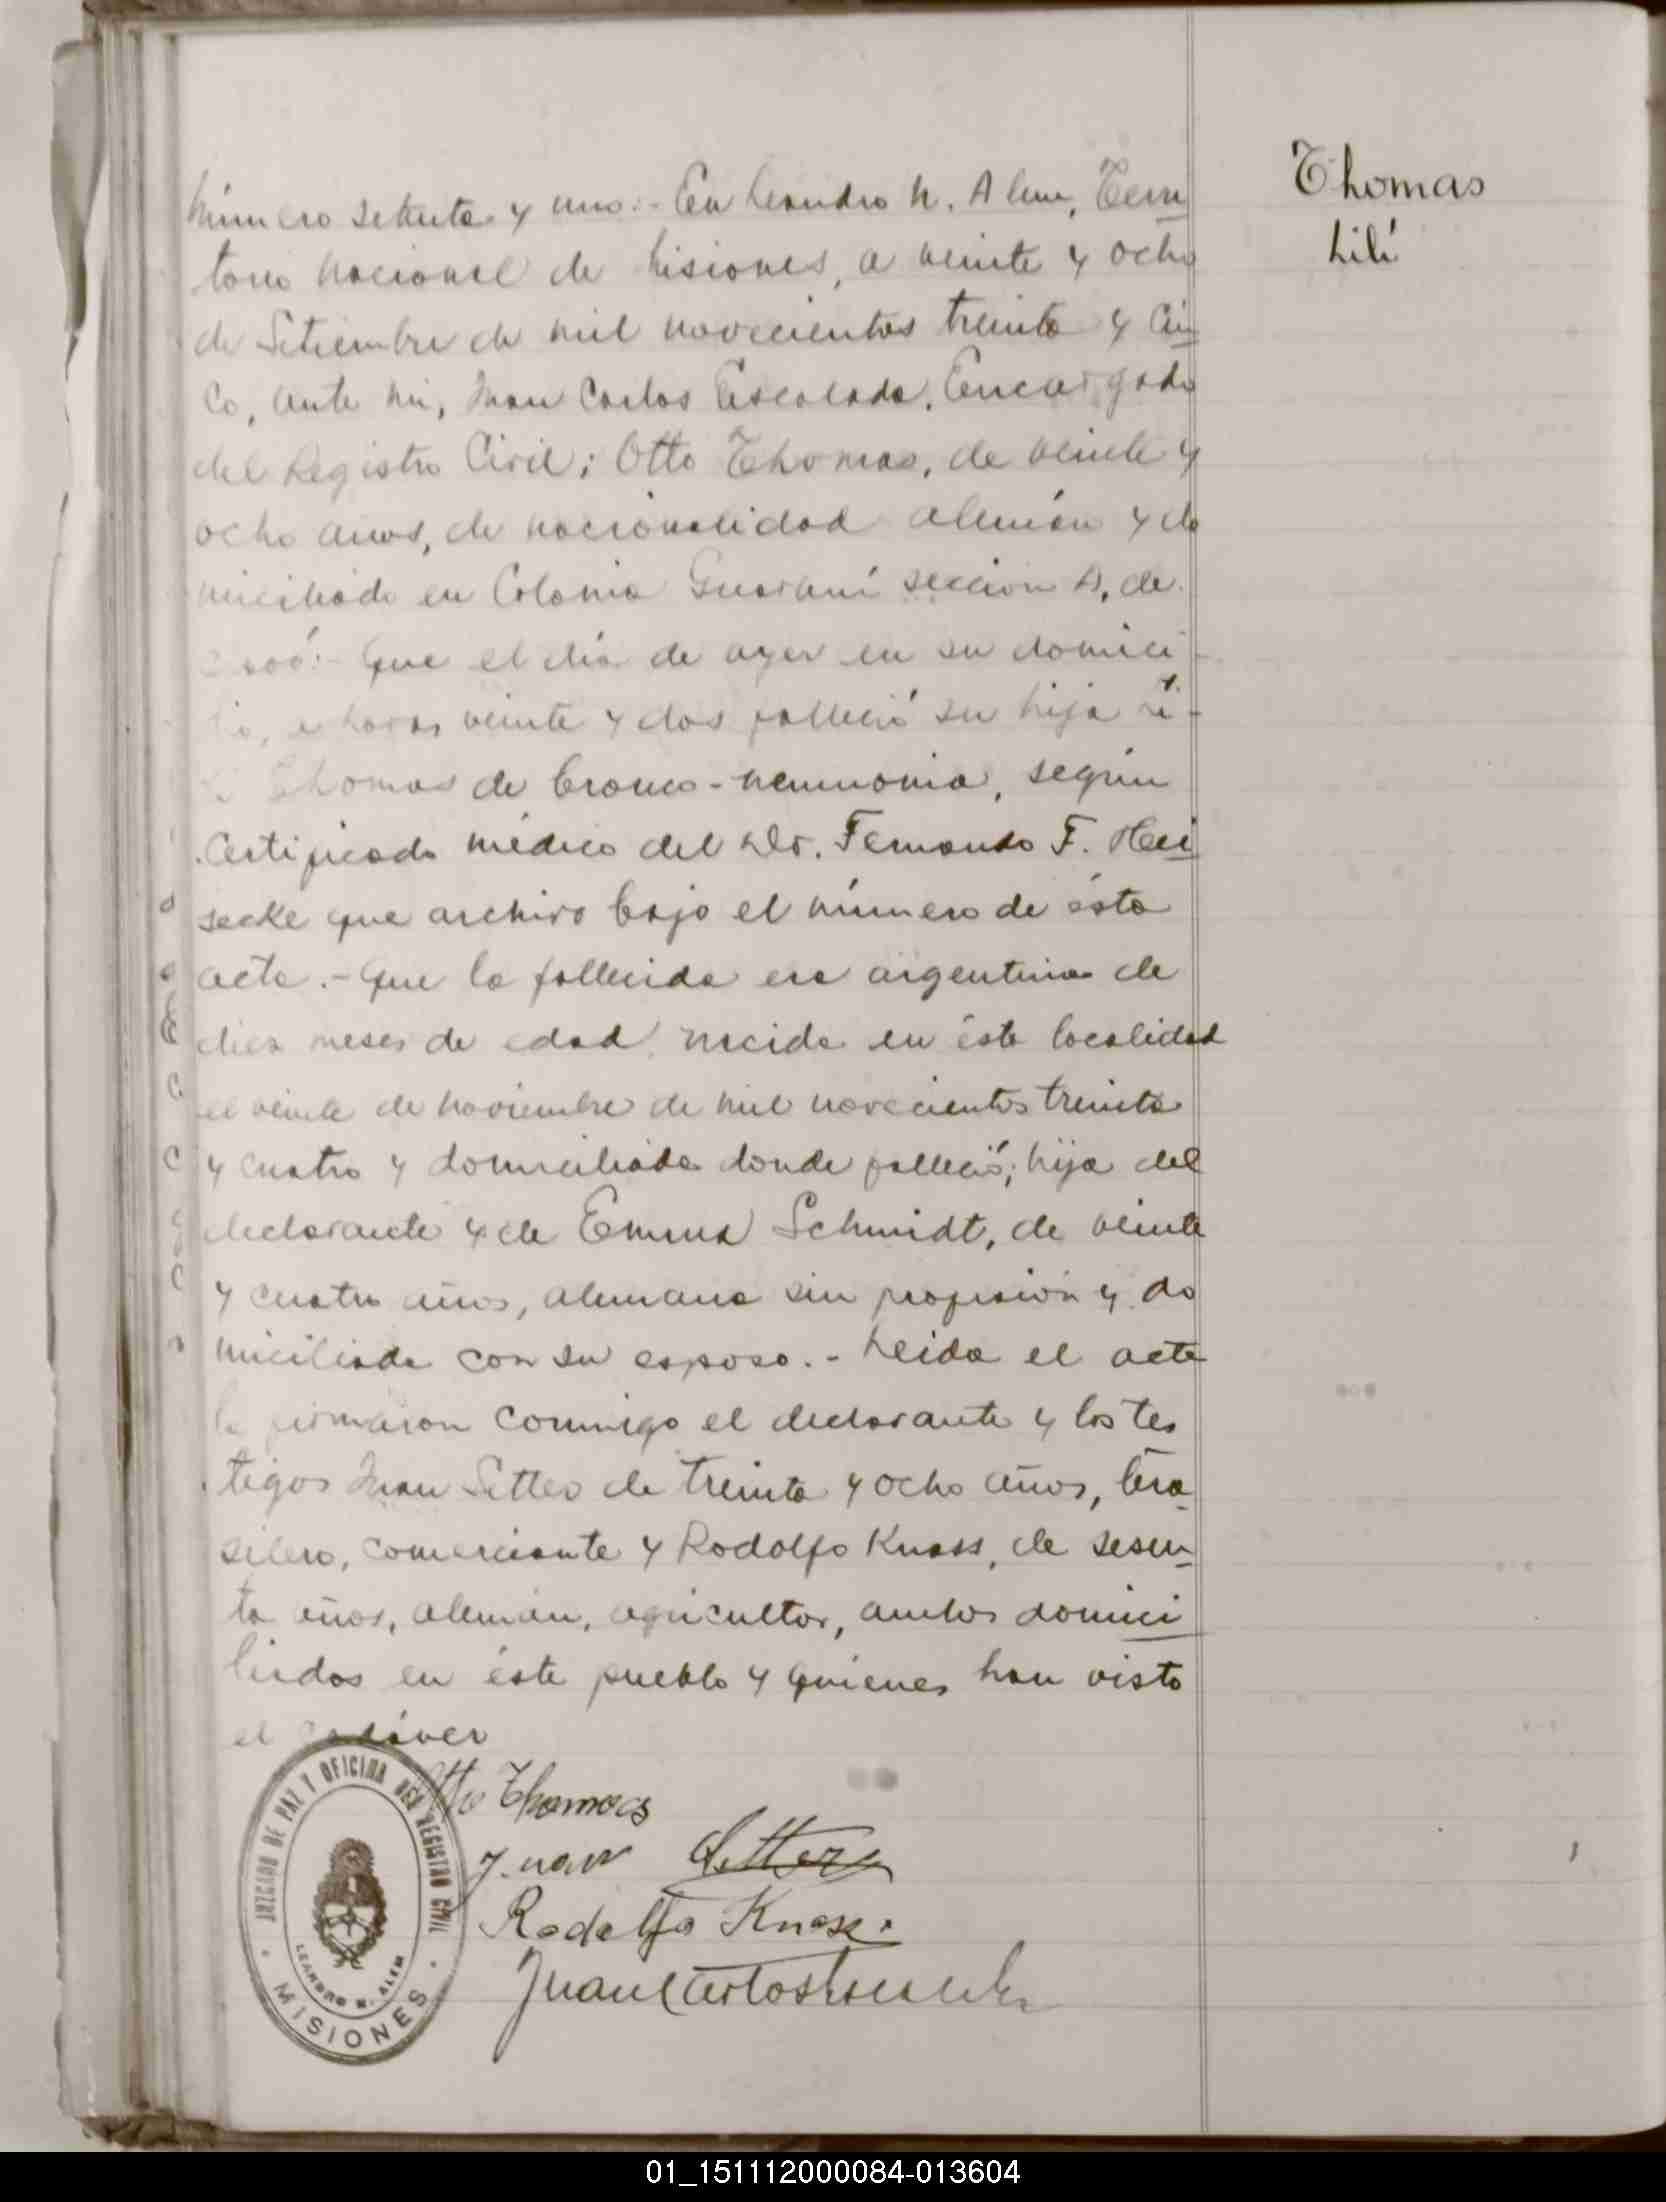 Thomas
Lili
Número setenta y uno:- En Leandro N. Alem, Terri
torio Nacional de Misiones, a veinte y ocho
de Setiembre de mil novecientos treinta y cin
co, ante mi, Juan Carlos Escalada, Encargado
del Registro Civil; Otto Thomas, de veinte y
ocho años, de nacionalidad alemán y do
miciliado en Colonia Guaraní sección A, de
:- Que el día de ayer en su domici-
lio, a horas veinte y dos falleció su hija Li-
li Thomas de bronco-neumonia, según
certificado médico del Dr. Fernando F. Hei
secke que archivo bajo el número de ésta
acta.- Que la fallecida era argentina de
diez meses de edad, nacida en ésta localidad
el veinte de noviembre de mil novecientos treinta
y cuatro y domiciliada donde falleció; hija del
declarante y de Emma Schmidt, de veinte
y cuatro años, alemana sin profesión y do
miciliada con su esposo.- Leida el acta
la firmaron conmigo el declarante y los tes
tigos Juan Setter de treinta y ocho años, bra
silero, comerciante y Rodolfo Knass, de sesen
ta años, alemán, agricultor, ambos domici
liados en éste pueblo y quienes han visto
el cadáver
Otto Thomas
Juan Setter
Rodolfo Knass.
Juan Carlos Escalada
JUZGADO DE PAZ Y OFICINA DEL REGISTRO CIVIL
LEANDRO N. ALEM
MISIONES
01_151112000084-013604